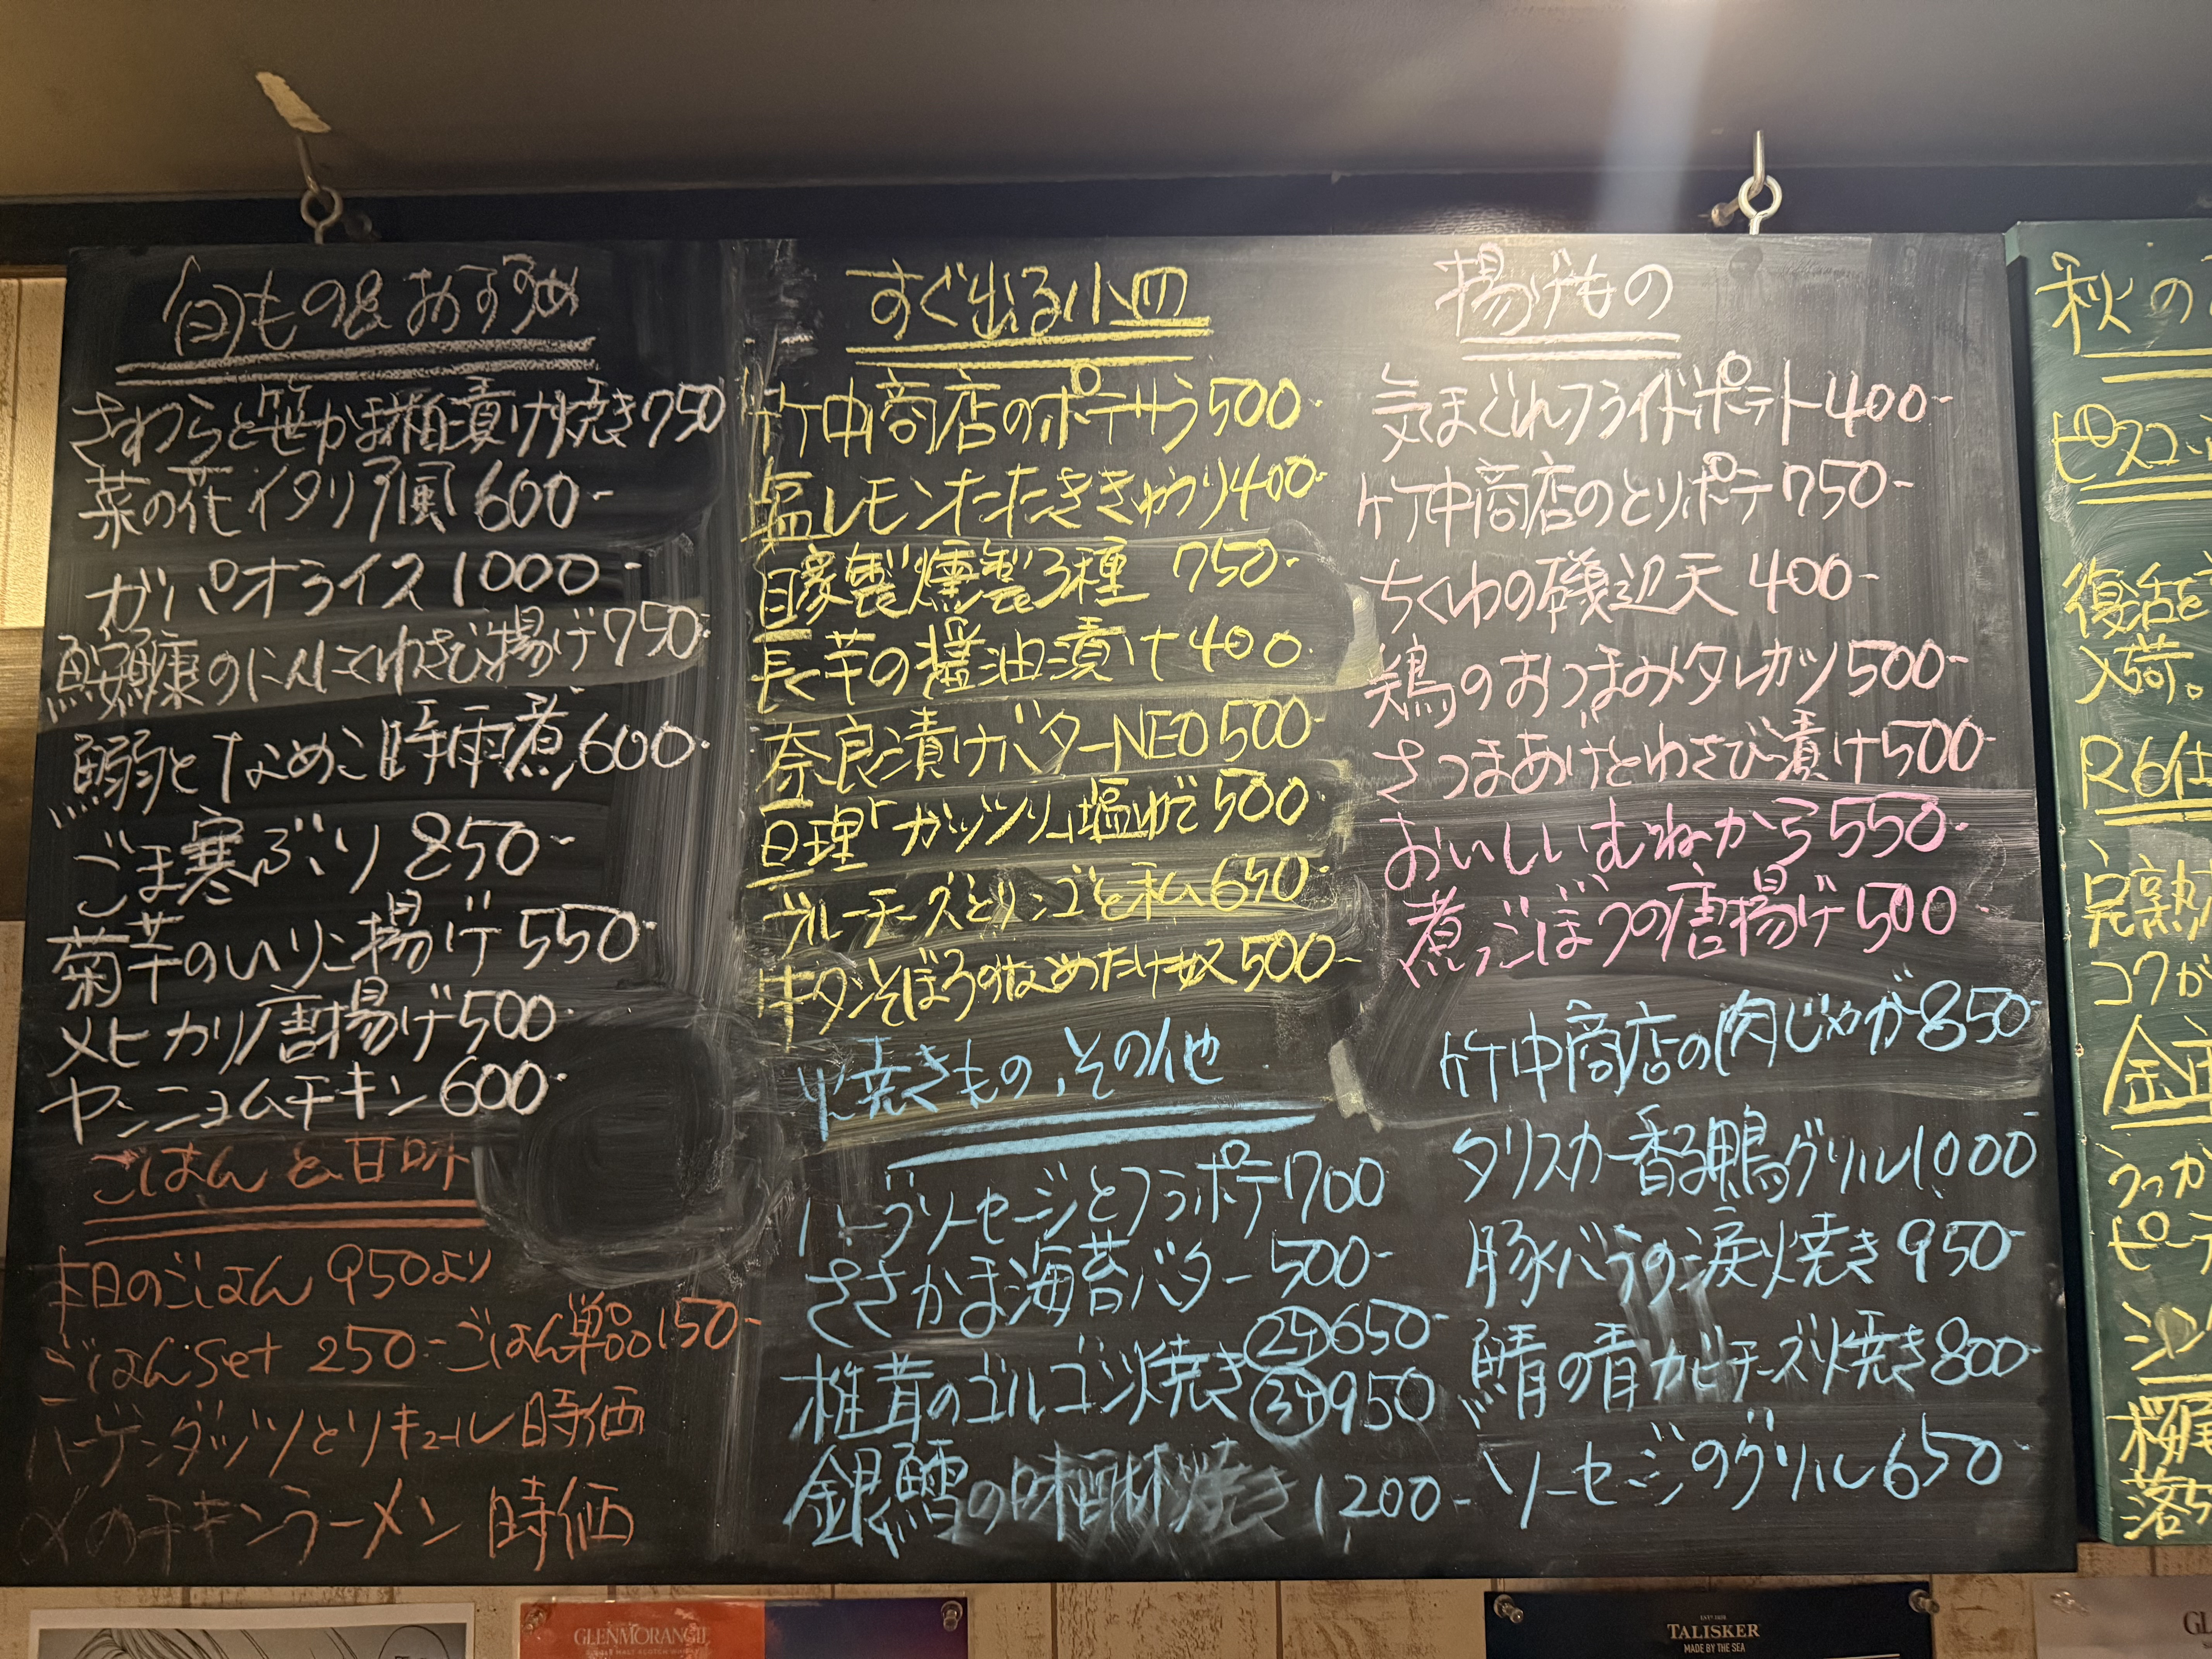 旬もの&おすすめ
さわらと笹かま粕漬け焼き750
菜の花イタリア風600-
ガパオライス1000-
鮟鱇のにんにくわさび揚げ750-
鰯となめこ時雨煮600-
ごま寒ぶり850-
菊芋のいりこ揚げ550-
メヒカリ唐揚げ500-
ヤンニョムチキン600-
ごはんと甘味
本日のごはん 950より
ごはんset 250-ごはん単品150-
ハーゲンダッツとリキュール 時価
〆のチキンラーメン 時価
すぐ出る小皿
竹中商店のポテサラ500-
塩レモンたたききゅうり400-
自家製燻製3種 750-
長芋の醤油漬け400-
奈良漬けバターNEO500-
亘理「ガッツリ」塩ゆで500-
ブルーチーズとリンゴと私650-
牛タンそぼろのなめたけ奴500-
焼きもの、その他
ハーブソーセージとフライポテ1700
ささかま海苔バター500-
椎茸のゴルゴンゾ焼き
2ヶ650-
3ヶ950
銀鱈の 焼き 1200-
揚げもの
気まぐれフライドポテト400-
竹中商店のとりポテ750-
ちくわの磯辺天400-
鶏のおつまみタレカツ500-
さつまあげとわさび漬け500-
おいしいむねから550-
煮ごぼうの唐揚げ500-
竹中商店の肉じゃが850-
タリスカー香る鴨グリル1000
豚バラの涙焼き950-
鯖の青カビチーズ焼き800-
ソーセージのグリル650-
秋の
ピスコ
復活を
入荷。
R6仕
完熟
コクが
うっか
ピー
シン
桜尾
落ち
GLENMORANGIE
SINGLE MALT SCOTCH WHISKY
TALISKER
MADE BY THE SEA
GL